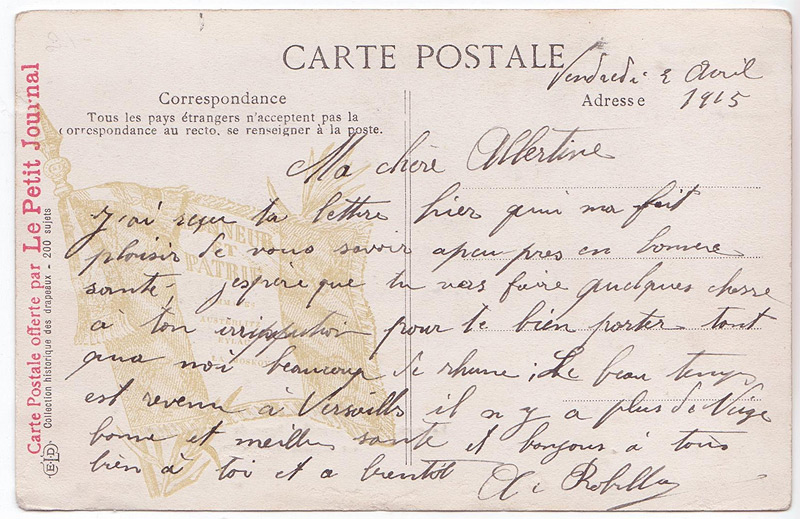 CARTE POSTALE
Vendredi 2 Avril
1915
Correspondance
Adresse
Tous les pays étrangers n'acceptent pas la
correspondance au recto, se renseigner à la poste.
Ma chère Albertine
J'ai reçu ta lettre hier qui ma fait
plaisir de vous savoir apeu pres en bonne
santé, jespère que tu vas faire quelques chose
à ton pour te bien porter tout
qua moi beaucoup de rhume; Le beau temps
est revenu à Versailles il n y a plus de Neige
bonne et meilleu santé et bonjour à tous
bien à toi et a bientôt
Carte Postale offerte par Le Petit Journal
Collection historique des drapeaux - 200 sujets
ELD
HONNEUR
ET
PATRIE
AUSTERLITZ
EYLAU
LA MOSKOWA